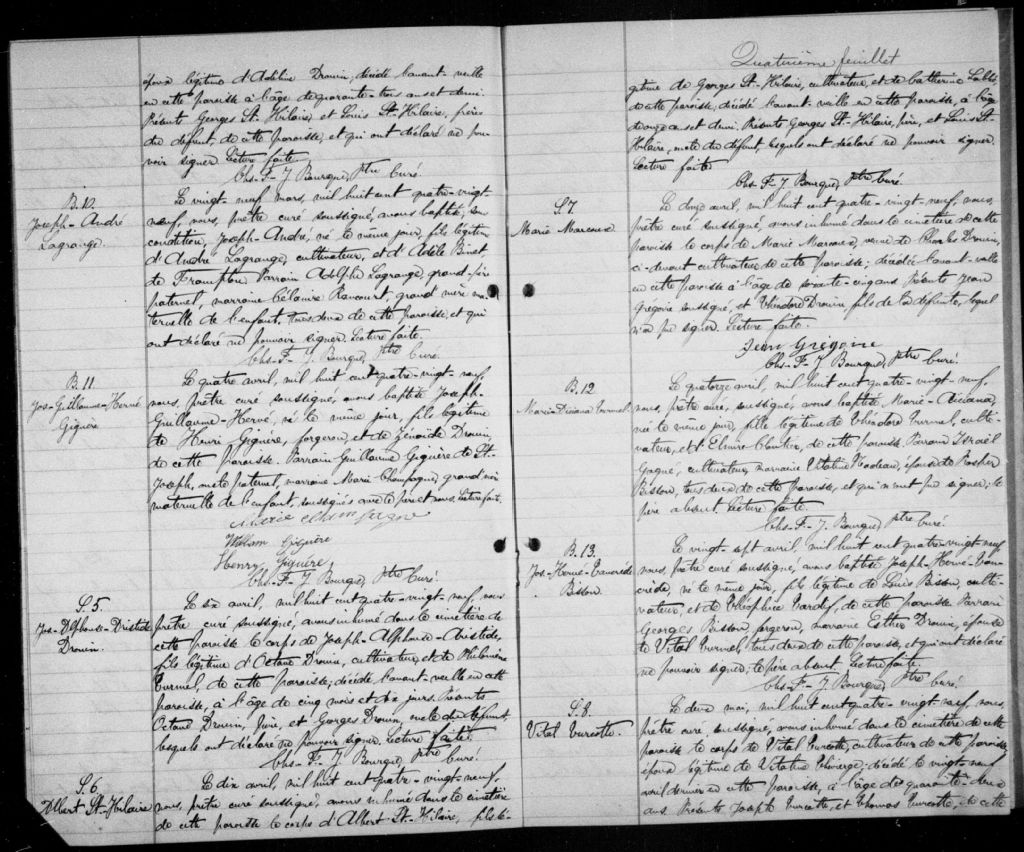 époux légitime d'Adéline Drouin, décédé l'avant-veille
en cette paroisse à l'âge de quarante-trois ans et demi.
Présents Georges St-Hilaire, et Louis St-Hilaire, frères
du défunt, de cette paroisse, et qui ont déclaré ne pou-
voir signer. Lecture faite.
Chs-F-J. Bourque, Ptre Curé.
B. 10.
Joseph-André
Lagrange.
Le vingt-neuf mars, mil huit cent quatre-vingt-
neuf, nous, prêtre curé soussigné, avons baptisé, sous
condition, Joseph-André, né le même jour, fils légitime
d'André Lagrange, cultivateur, et d'Adèle Binet,
de Frampton. Parrain Adolphe Lagrange, grand-père
paternel, marraine Célanire Rancourt, grand'mère ma-
ternelle de l'enfant, tous deux de cette paroisse, et qui
ont déclaré ne pouvoir signer. Lecture faite.
Chs-F-J. Bourque, Ptre Curé.
B. 11
Jos-Guillaume-Hervé
Giguère.
Le quatre avril, mil huit cent quatre-vingt-neuf,
nous, prêtre curé soussigné, avons baptisé Joseph-
Guillaume-Hervé, né le même jour, fils légitime
de Henri Giguère, forgeron, et de Zénaïde Drouin,
de cette paroisse. Parrain Guillaume Giguère de St-
Joseph, oncle paternel, marraine Marie Champagne, grand'mère
maternelle de l'enfant, soussignés avec le père et nous. Lecture faite.
Marie Champagne
William Giguère
Henry Giguère
Chs-F-J. Bourque, Ptre Curé.
S. 5.
Jos-Alphonse-Aristide
Drouin.
Le six avril, mil huit cent quatre-vingt-neuf, nous
prêtre curé soussigné, avons inhumé dans le cimetière de
cette paroisse le corps de Joseph-Alphonse-Aristide,
fils légitime d'Octave Drouin, cultivateur, et de Philomène
Turmel, de cette paroisse; décédé l'avant-veille en cette
paroisse, à l'âge de cinq mois et dix jours. Présents
Octave Drouin, père, et Georges Drouin, oncle du défunt,
lesquels ont déclaré ne pouvoir signer. Lecture faite.
Chs-F-J. Bourque, Ptre Curé.
S. 6
Albert St-Hilaire
Le dix avril, mil huit cent quatre-vingt-neuf,
nous, prêtre curé soussigné, avons inhumé dans le cimetière
de cette paroisse le corps d'Albert St-Hilaire, fils lé-
Quatrième feuillet
gitime de Georges St-Hilaire, cultivateur, et de Catherine
de cette paroisse, décédé l'avant-veille en cette paroisse, à l'âge
de onze ans et demi. Présents Georges St-Hilaire, père, et Louis St-
Hilaire, oncle du défunt, lesquels ont déclaré ne pouvoir signer.
Lecture faite.
Chs-F-J Bourque, Ptre Curé.
S. 7.
Marie Marcoux
Le douze avril, mil huit cent quatre-vingt-neuf, nous,
prêtre curé soussigné, avons inhumé dans le cimetière de cette
paroisse le corps de Marie Marcoux, veuve de Charles Drouin,
ci-devant cultivateur de cette paroisse; décédée l'avant-veille
en cette paroisse à l'âge de soixante-cinq ans. Présents Jean
Grégoire soussigné, et Théodore Drouin fils de la défunte, lequel
n'a pu signer. Lecture faite.
Jean Gregoire
Chs-F-J Bourque, Ptre Curé.
B. 12
Marie- Turmel.
Le quatorze avril, mil huit cent quatre-vingt-neuf,
nous, prêtre curé, soussigné, avons baptisé, Marie-
née le même jour, fille légitime de Théodore Turmel, culti-
vateur, et d'Elmire Cloutier, de cette paroisse. Parrain Israël
Gagné, cultivateur, marraine Vitaline Nadeau, épouse de Prosper
Bisson, tous deux de cette paroisse, et qui n'ont pu signer; le
père absent. Lecture faite.
Chs-F-J. Bourque, Ptre Curé.
B. 13.
Jos-Hervé-Tancrède
Bisson.
Le vingt-sept avril, mil huit cent quatre-vingt-neuf,
nous, prêtre curé soussigné, avons baptisé Joseph-Hervé-Tan-
crède, né le même jour, fils légitime de Louis Bisson, culti-
vateur, et de Théophie Tardif, de cette paroisse. Parrain
Georges Bisson, forgeron, marraine Esther Drouin, épouse
de Vital Turmel, tous deux de cette paroisse, et qui ont déclaré
ne pouvoir signer; le père absent. Lecture faite.
Chs-F-J. Bourque, Ptre Curé.
S. 8.
Vital Turcotte.
Le deux mai, mil huit cent quatre-vingt-neuf, nous,
prêtre curé, soussigné, avons inhumé dans le cimetière de cette
paroisse le corps de Vital Turcotte, cultivateur de cette paroisse,
époux légitime de Vitaline Thivierge; décédé le vingt-neuf
avril dernier en cette paroisse, à l'âge de quarante-deux
ans. Présents Joseph Turcotte, et Thomas Turcotte, de cette